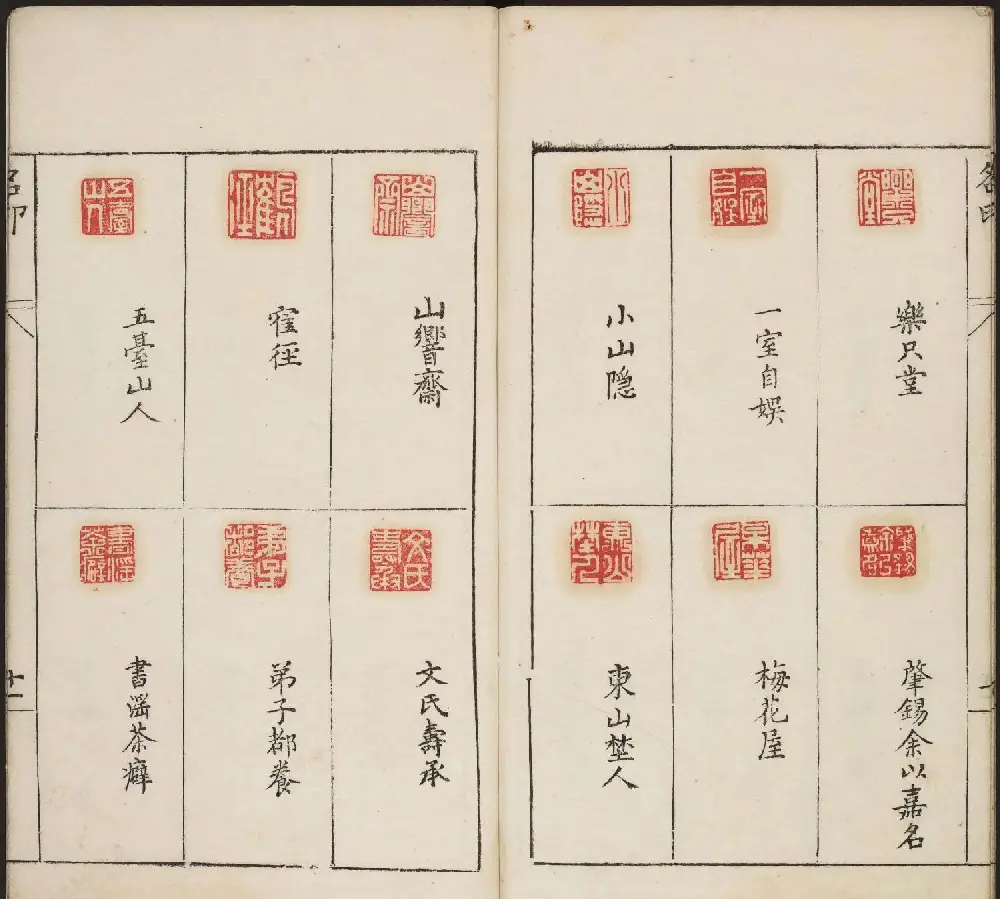 樂只堂
一室自娱
小山隠
肇錫余以嘉名
梅花屋
東山埜人
山響齋
寉徑
五臺山人
文氏壽承
弟子都養
書滛茶癖